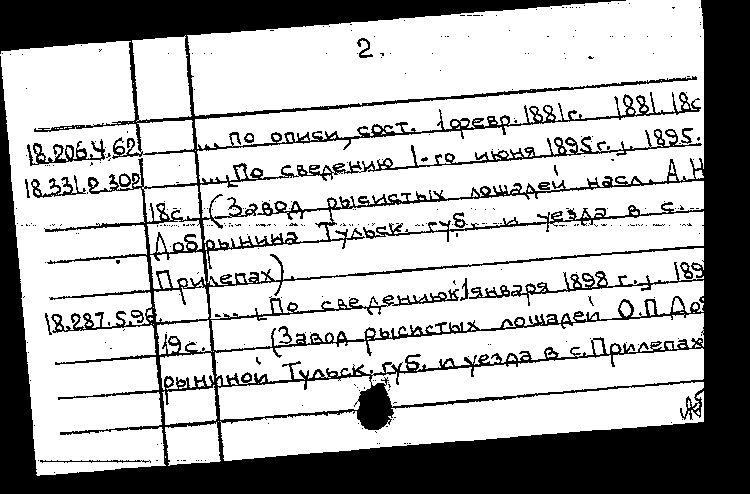 2.
18.206.4.62 ... по описи, сост. 1 февр. 1881г. 1881. 18с
18.331.2.302 ..., По сведению 1-го июня 1895г. j. 1895.
18с. (Завод рысистых лошадей насл. А.Н
Добрынина Тульск. губ. и уезда в с.
Прилепах).
18.287.5.96 ..., По сведению к 1 января 1898 г. j. 189
19с. (Завод рысистых лошадей О.П. Доб
рыниной Тульск. губ. и уезда в с. Прилепах